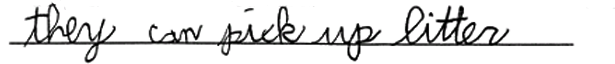 they can pick up litter